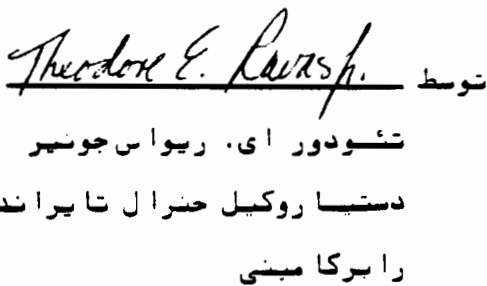 توسط Theodore E.
تئودور ای. ریواس جونیر
دستیار وکیل جنرال تایر اند
رابر کامپنی